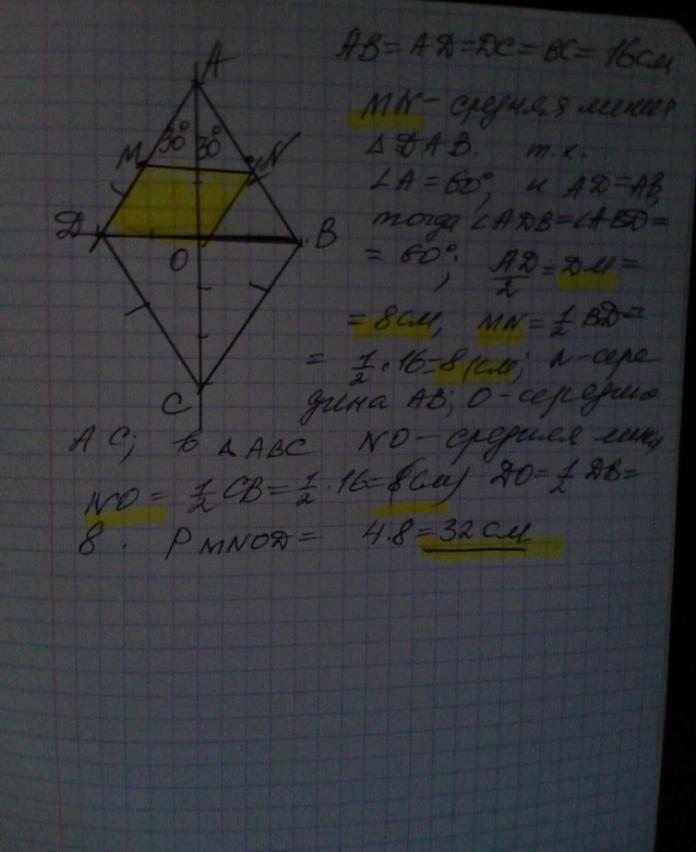 A
30° 30°
M N
D B
O
C
AB = AD = DC = BC = 16 см
MN - средняя линия
△ DAB. т.к.
∠A = 60°, и AD = AB,
тогда ∠ADB = ∠ABD =
= 60°; AD/2 = DM =
= 8 см, MN = 1/2 BD =
= 1/2 · 16 = 8 (см); N - сере
дина AB; O - середина
AC; в △ ABC NO - средняя линия
NO = 1/2 CB = 1/2 · 16 = 8 (см) DO = 1/2 DB =
8. P MNOD = 4·8 = 32 см